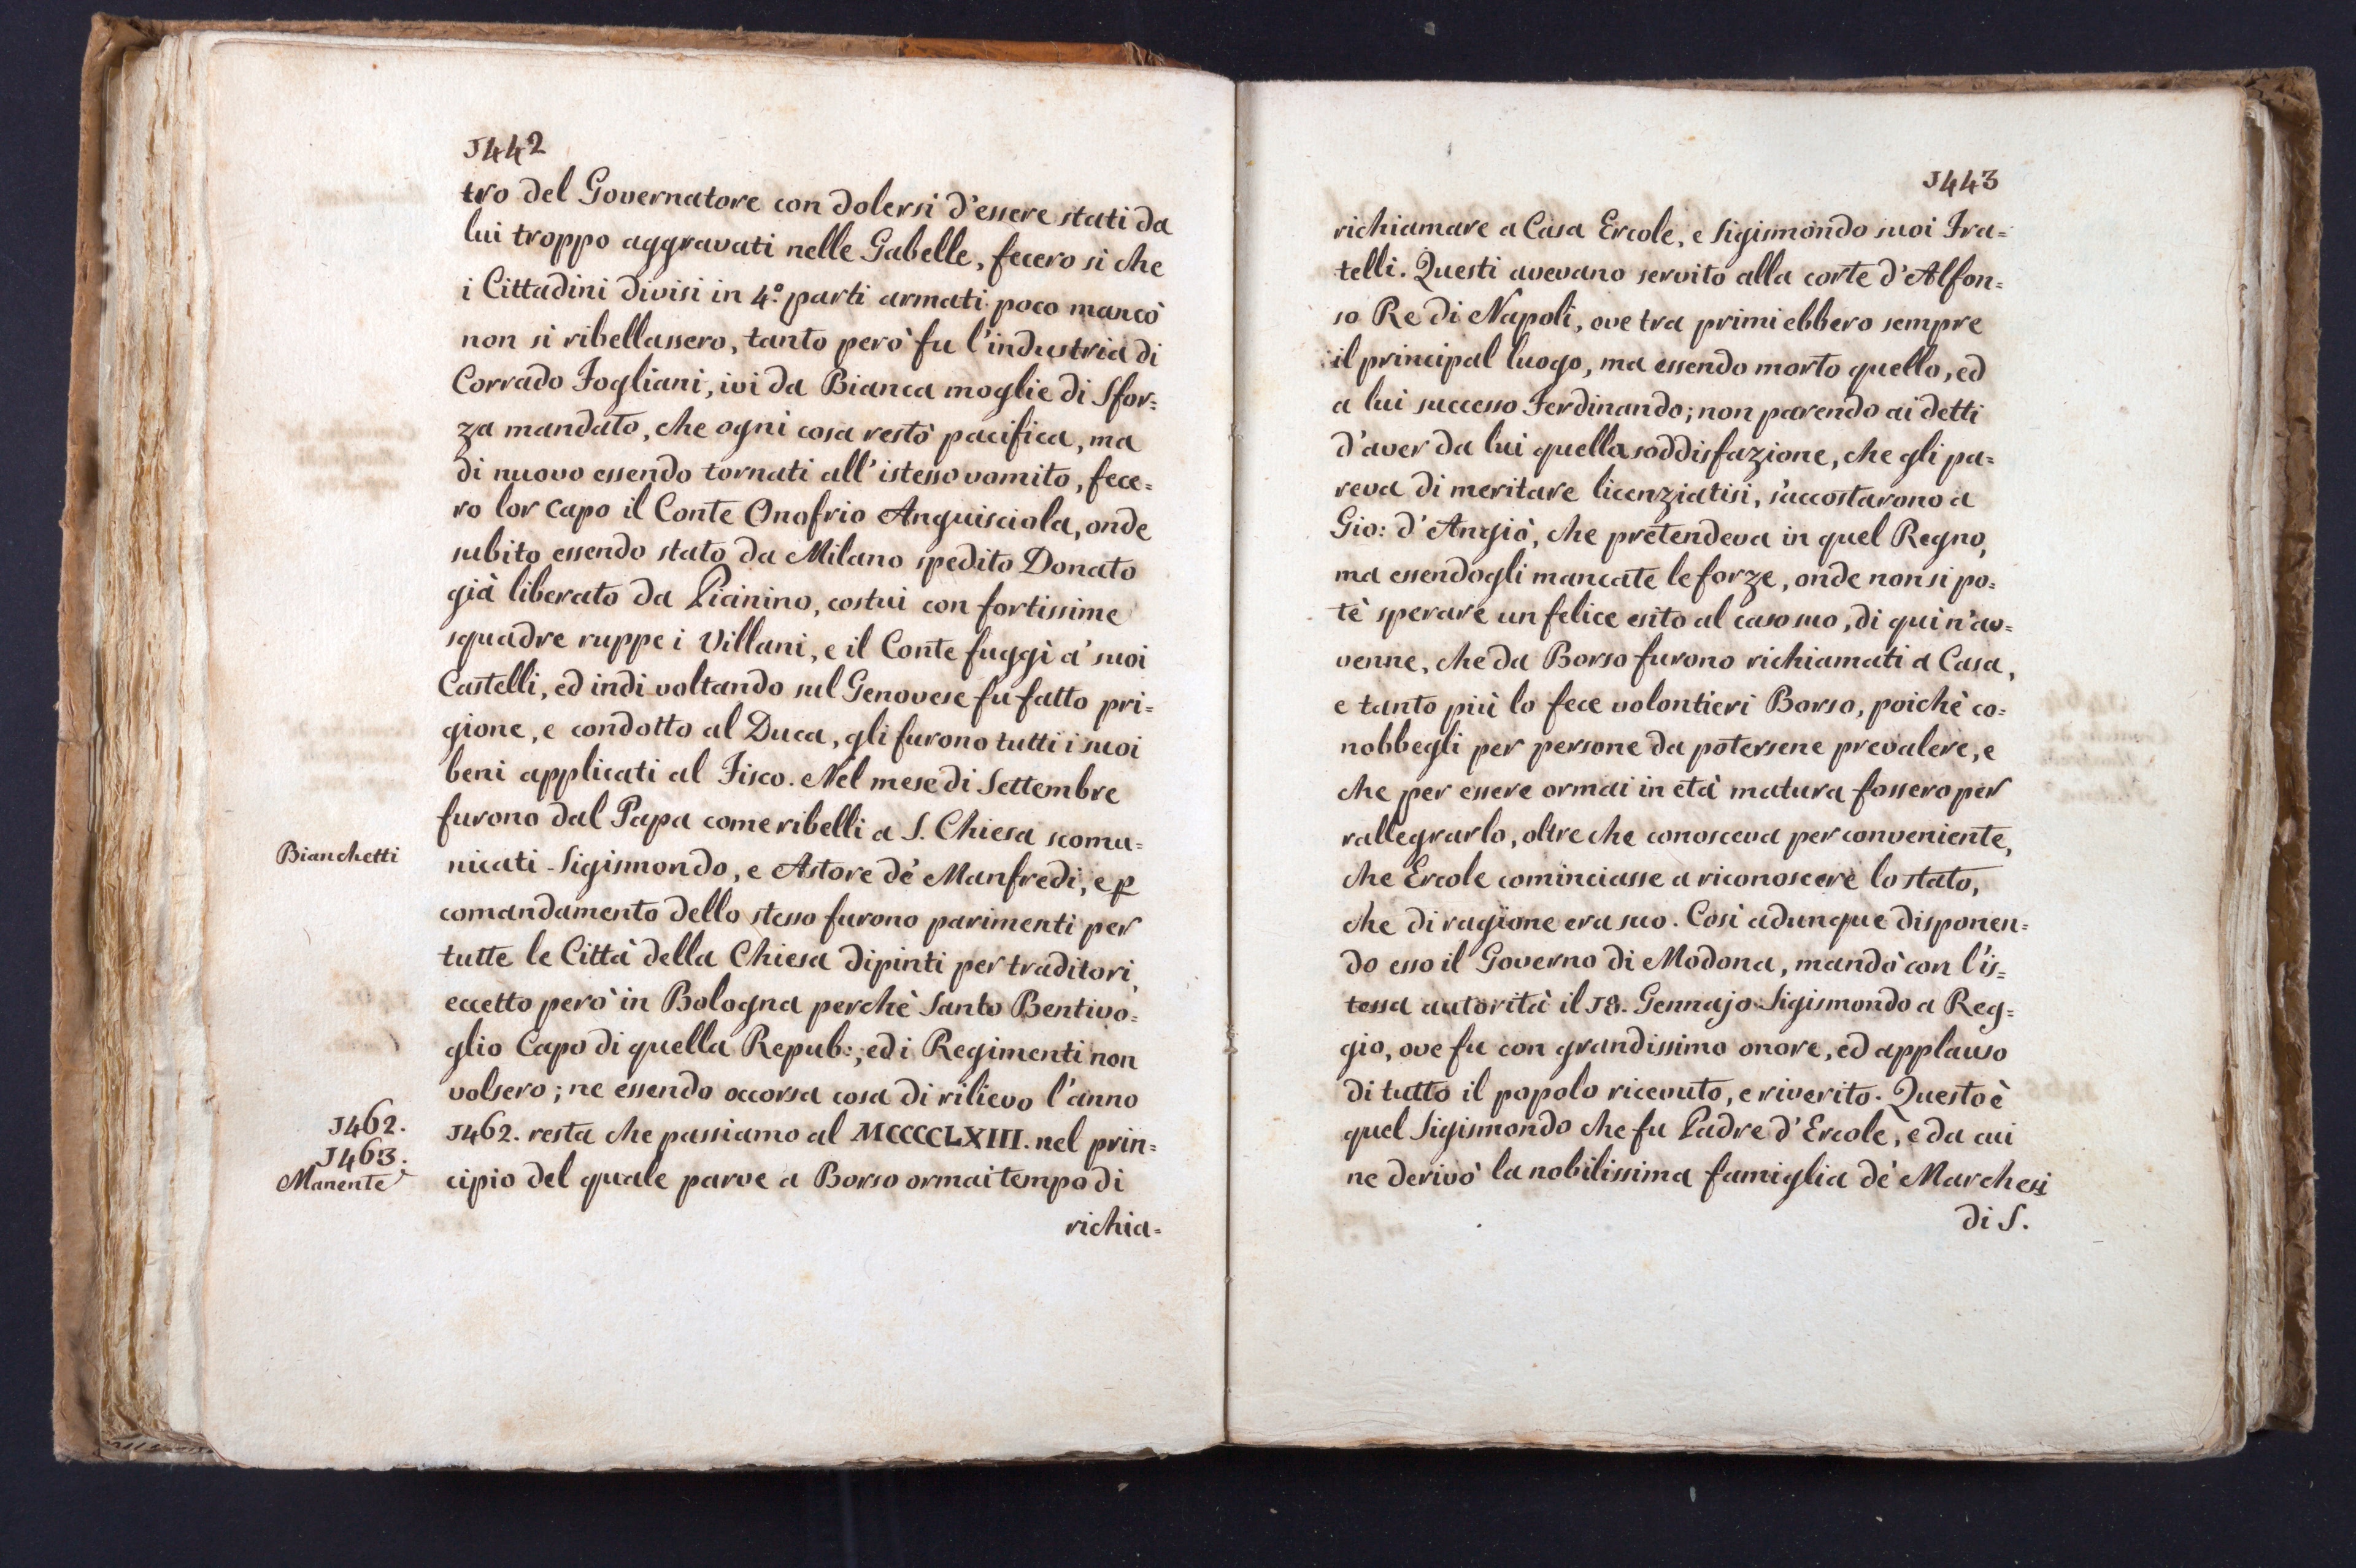 1442
tro del Governatore con dolersi d'essere stati da
lui troppo aggravati nelle Gabelle, fecero sì che
i Cittadini divisi in 4.º parti armati poco mancò
non si ribellassero, tanto però fu l'industria di
Corrado Fogliani, ivi da Bianca moglie di Sfor=
za mandato, che ogni cosa restò pacifica, ma
di nuovo essendo tornati all'istesso vomito, fece=
ro lor capo il Conte Onofrio Anguisciola, onde
subito essendo stato da Milano spedito Donato
già liberato da Picinino, costui con fortissime
squadre ruppe i Villani, e il Conte fuggì a' suoi
Castelli, ed indi voltando sul Genovese fu fatto pri=
gione, e condotto al Duca, gli furono tutti i suoi
beni applicati al Fisco. Nel mese di Settembre
furono dal Papa come ribelli a S. Chiesa scomu=
Bianchetti
nicati Sigismondo, e Astore de' Manfredi, e p
comandamento dello stesso furono parimenti per
tutte le Città della Chiesa dipinti per traditori,
eccetto però in Bologna perchè Santo Bentivo=
glio Capo di quella Repub:, ed i Regimenti non
volsero; ne essendo occorsa cosa di rilievo l'anno
1462.
1462. resta che passiamo al MCCCCLXIII. nel prin=
1463.
Manente
cipio del quale parve a Borso ormai tempo di
richia=
1443
richiamare a Casa Ercole, e Sigismondo suoi Fra=
telli. Questi avevano servito alla corte d'Alfon=
so Re di Napoli, ove tra primi ebbero sempre
il principal luogo, ma essendo morto quello, ed
a lui successo Ferdinando; non parendo ai detti
d'aver da lui quella soddisfazione, che gli pa=
reva di meritare licenziatisi, s'accostarono a
Gio: d'Angiò, che pretendeva in quel Regno,
ma essendogli mancate le forze, onde non si po=
tè sperare un felice esito al caso suo, di qui n'av=
venne, che da Borso furono richiamati a Casa,
e tanto più lo fece volontieri Borso, poichè co=
nobbegli per persone da potersene prevalere, e
che per essere ormai in età matura fossero per
rallegrarlo, oltre che conosceva per conveniente,
che Ercole cominciasse a riconoscere lo stato,
che di ragione era suo. Così adunque disponen=
do esso il Governo di Modona, mandò con l'is=
tessa autorità il 18. Gennajo Sigismondo a Reg=
gio, ove fu con grandissimo onore, ed applauso
di tutto il popolo ricevuto, e riverito. Questo è
quel Sigismondo che fu Padre d'Ercole, e da cui
ne derivò la nobilissima famiglia de' Marchesi
di S.